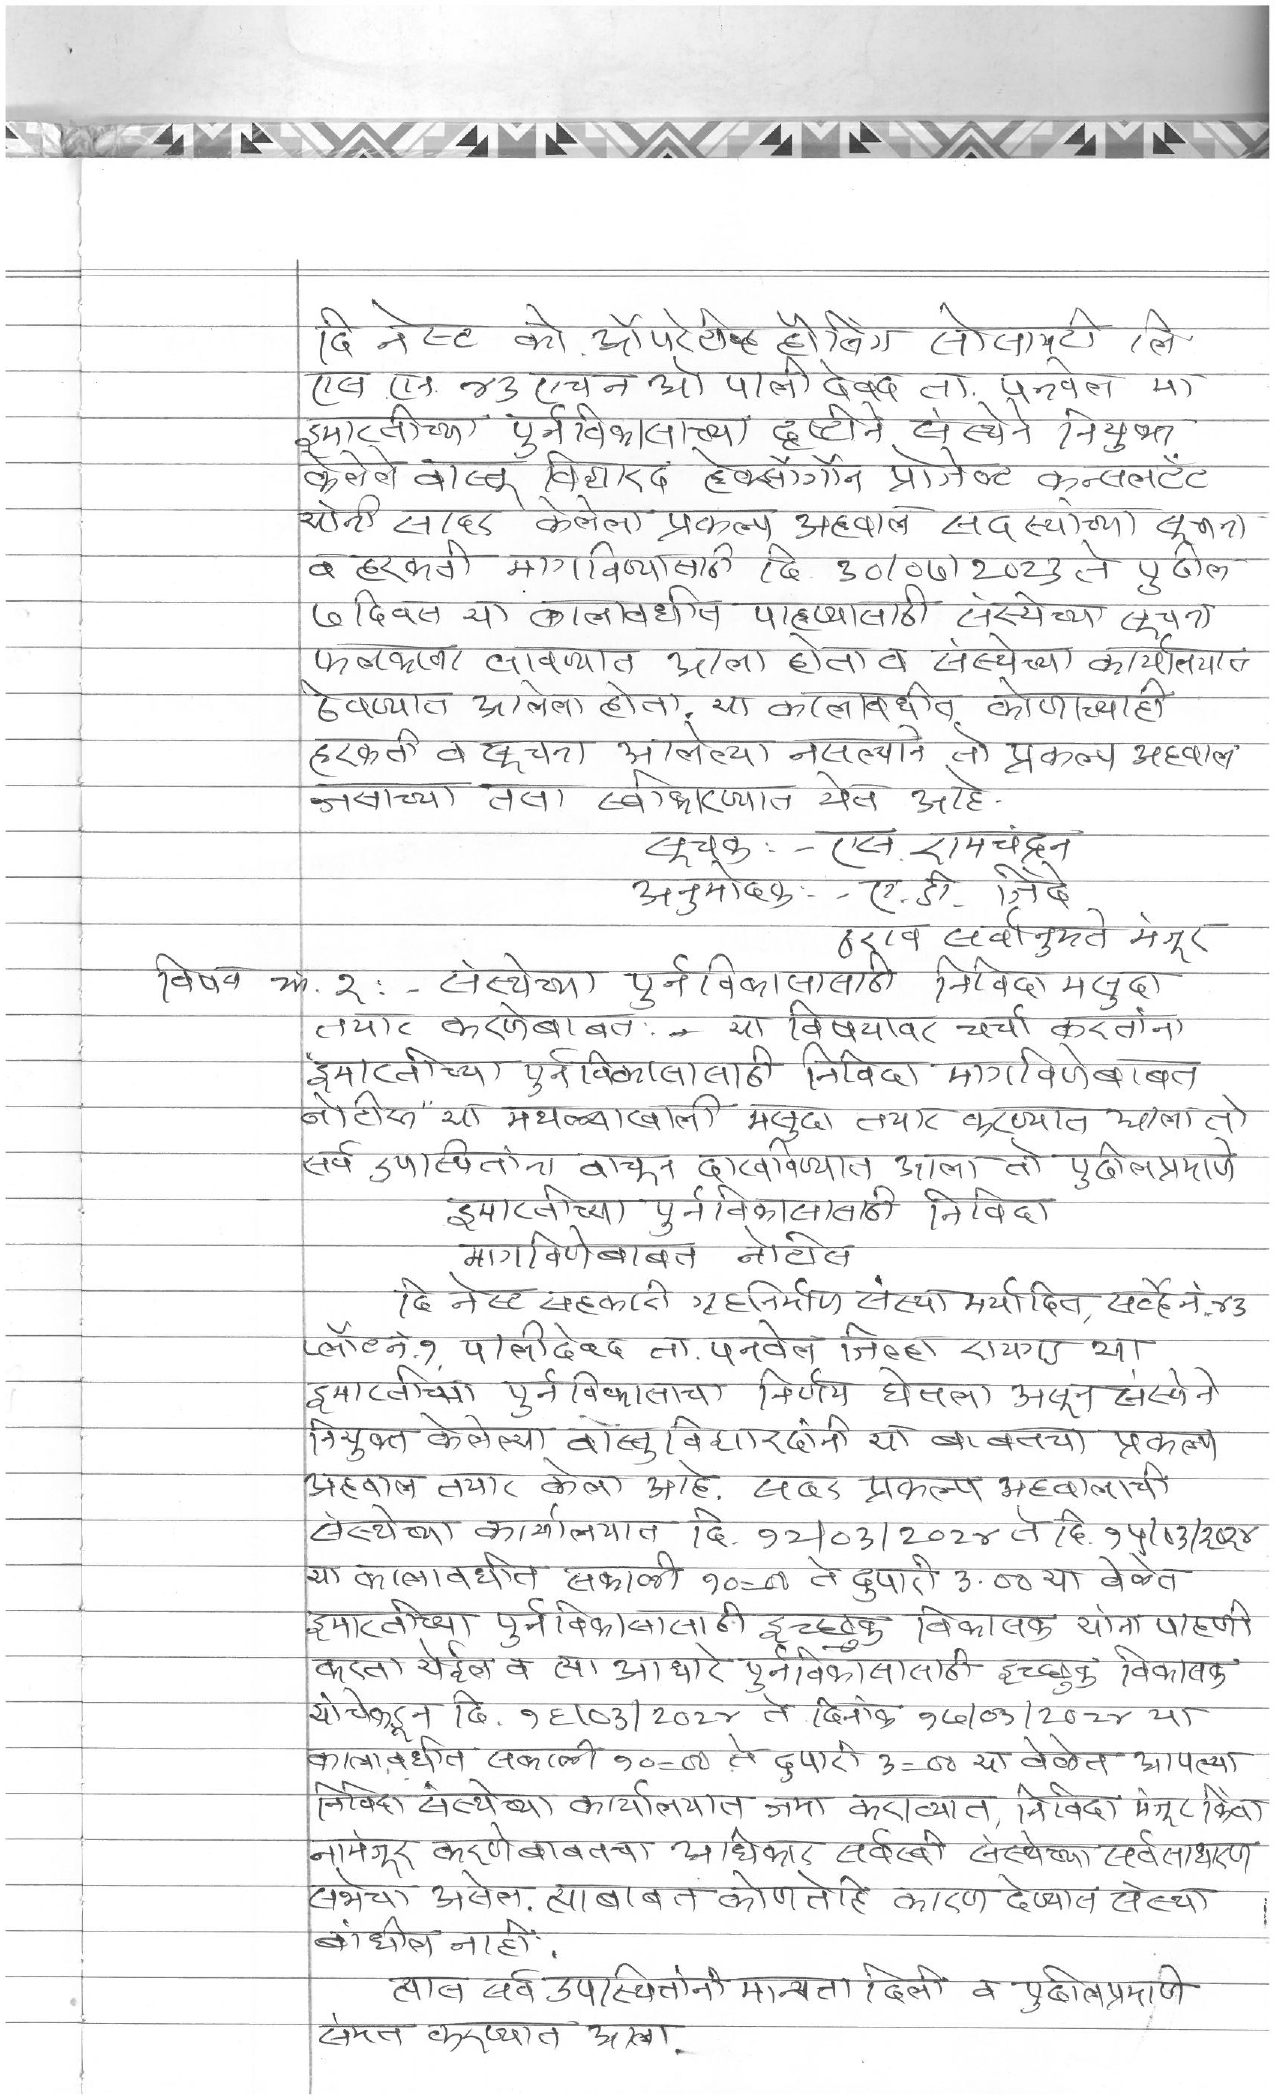 दि नेस्ट को ऑपरेटीव्ह हौसिंग सोसायटी लि
एस. एन. ४३ एचन ओ पाली देवद ता. पनवेल या
इमारतीच्या पुर्नविकासाच्या दृष्टीने संस्थेने नियुक्त
केलेले वास्तू विशारद हेक्सॅगॉन प्रोजेक्ट कन्सलटंट
यांनी सादर केलेला प्रकल्प अहवाल सदस्यांच्या सूचना
व हरकती मागविण्यासाठी दि. ३०/०७/२०२३ ते पुढील
७ दिवस या कालावधीत पाहण्यासाठी संस्थेच्या सूचना
फलकावर लावण्यात आला होता व संस्थेच्या कार्यालयात
ठेवण्यात आलेला होता. या कालावधीत कोणाच्याही
हरकती व सूचना आलेल्या नसल्याने तो प्रकल्प अहवाल
जसाच्या तसा स्वीकारण्यात येत आहे.
सूचक :- एस. रामचंद्रन
अनुमोदक :- ए. डी. शिंदे
ठराव सर्वानुमते मंजूर
विषय क्र. २ :- संस्थेच्या पुर्नविकासासाठी निविदा मसुदा
तयार करणेबाबत :- या विषयावर चर्चा करतांना
इमारतीच्या पुर्नविकासासाठी निविदा मागविणेबाबत
नोटीस" या मथळ्याखाली मसुदा तयार करण्यात आला तो
सर्व उपस्थितांना वाचून दाखविण्यात आला तो पुढीलप्रमाणे
इमारतीच्या पुर्नविकासासाठी निविदा
मागविणेबाबत नोटीस
दि नेस्ट सहकारी गृहनिर्माण संस्था मर्यादित, सर्व्हे नं. ४३
प्लॉट नं. १, पालीदेवद ता. पनवेल जिल्हा रायगड या
इमारतीच्या पुर्नविकासाचा निर्णय घेतला असून संस्थेने
नियुक्त केलेल्या वास्तुविशारदांनी या बाबतचा प्रकल्प
अहवाल तयार केला आहे. सदर प्रकल्प अहवालाची
संस्थेच्या कार्यालयात दि. १२/०३/२०२४ ते दि. १५/०३/२०२४
या कालावधीत सकाळी १०=०० ते दुपारी ३.०० या वेळेत
इमारतीच्या पुर्नविकासासाठी इच्छुक विकासक यांना पाहणी
करता येईल व त्या आधारे पुर्नविकासासाठी इच्छुक विकासक
यांचेकडून दि. १६/०३/२०२४ ते दिनांक १७/०३/२०२४ या
कालावधीत सकाळी १०=०० ते दुपारी ३=०० या वेळेत आपल्या
निविदा संस्थेच्या कार्यालयात जमा कराव्यात, निविदा मंजूर किंवा
नामंजूर करणेबाबतचा अधिकार सर्वस्वी संस्थेच्या सर्वसाधारण
सभेचा असेल. त्याबाबत कोणतेहि कारण देण्यास संस्था
बांधील नाही.
त्यास सर्व उपस्थितांनी मान्यता दिली व पुढीलप्रमाणे
संमत करण्यात आला.